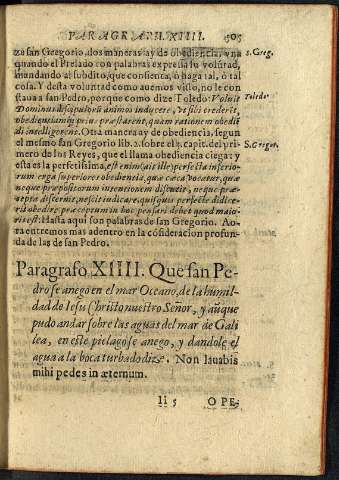 PARAGRAPH. XIIII. 505
za san Gregorio, dos maneras ay de obediencia, vna
quando el Prelado con palabras expressa su volũtad,
mandando al subdito, que consienta, ò haga tal, ò tal
cosa. Y desta voluntad como auemos visto, no le con
staua a san Pedro, porque como dize Toledo: Voluit
Dominus discipulorũ animos inducere, vt sibi crederẽt,
obedientiamq́; priùs præstarent, quàm rationem obediẽ
di intelligerent. Otra manera ay de obediencia, segun
el mesmo san Gregorio lib. 2. sobre el 4. capit. del pri
mero de los Reyes, que el llama obediencia ciega: y
esta es la perfectissima, est enim (ait ille) perfecta inferio
rum erga superiores obediẽtia, quæ cæca vocatur, quæ
neque præpositorum intentionem discutit, neque præ-
cepta discernit, nescit iudicare, quisquis perfectè didice-
rit obedire, præceptum in hoc pensari debet quod maio
ris est: Hasta aqui son palabras de san Gregorio. Ao-
ra entremos mas adentro en la cõsideracion profun-
da de las de san Pedro.
s. Greg.
Toledo
S. Gregor.
Paragrafo XIIII. Que san Pe-
dro se anego en el mar Oceano, de la humil-
dad de Iesu Christo nuestro Señor, y aũque
pudo andar sobre las aguas del mar de Gali
lea, en este pielago se anego, y dandole el
agua a la boca turbado dize. Non lauabis
mihi pedes in æternum.
Ii 5 OPE-